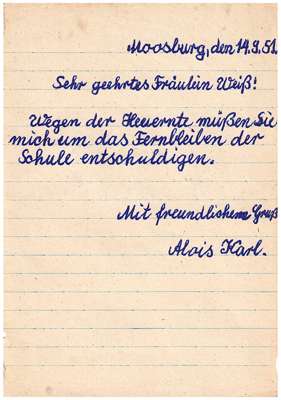 Moosburg, den 14.9.51.
Sehr geehrtes Fräulein Weiß!
Wegen der Heuernte müßen Sie
mich um das Fernbleiben der
Schule entschuldigen.
Mit freundlichem Gruß
Alois Karl.